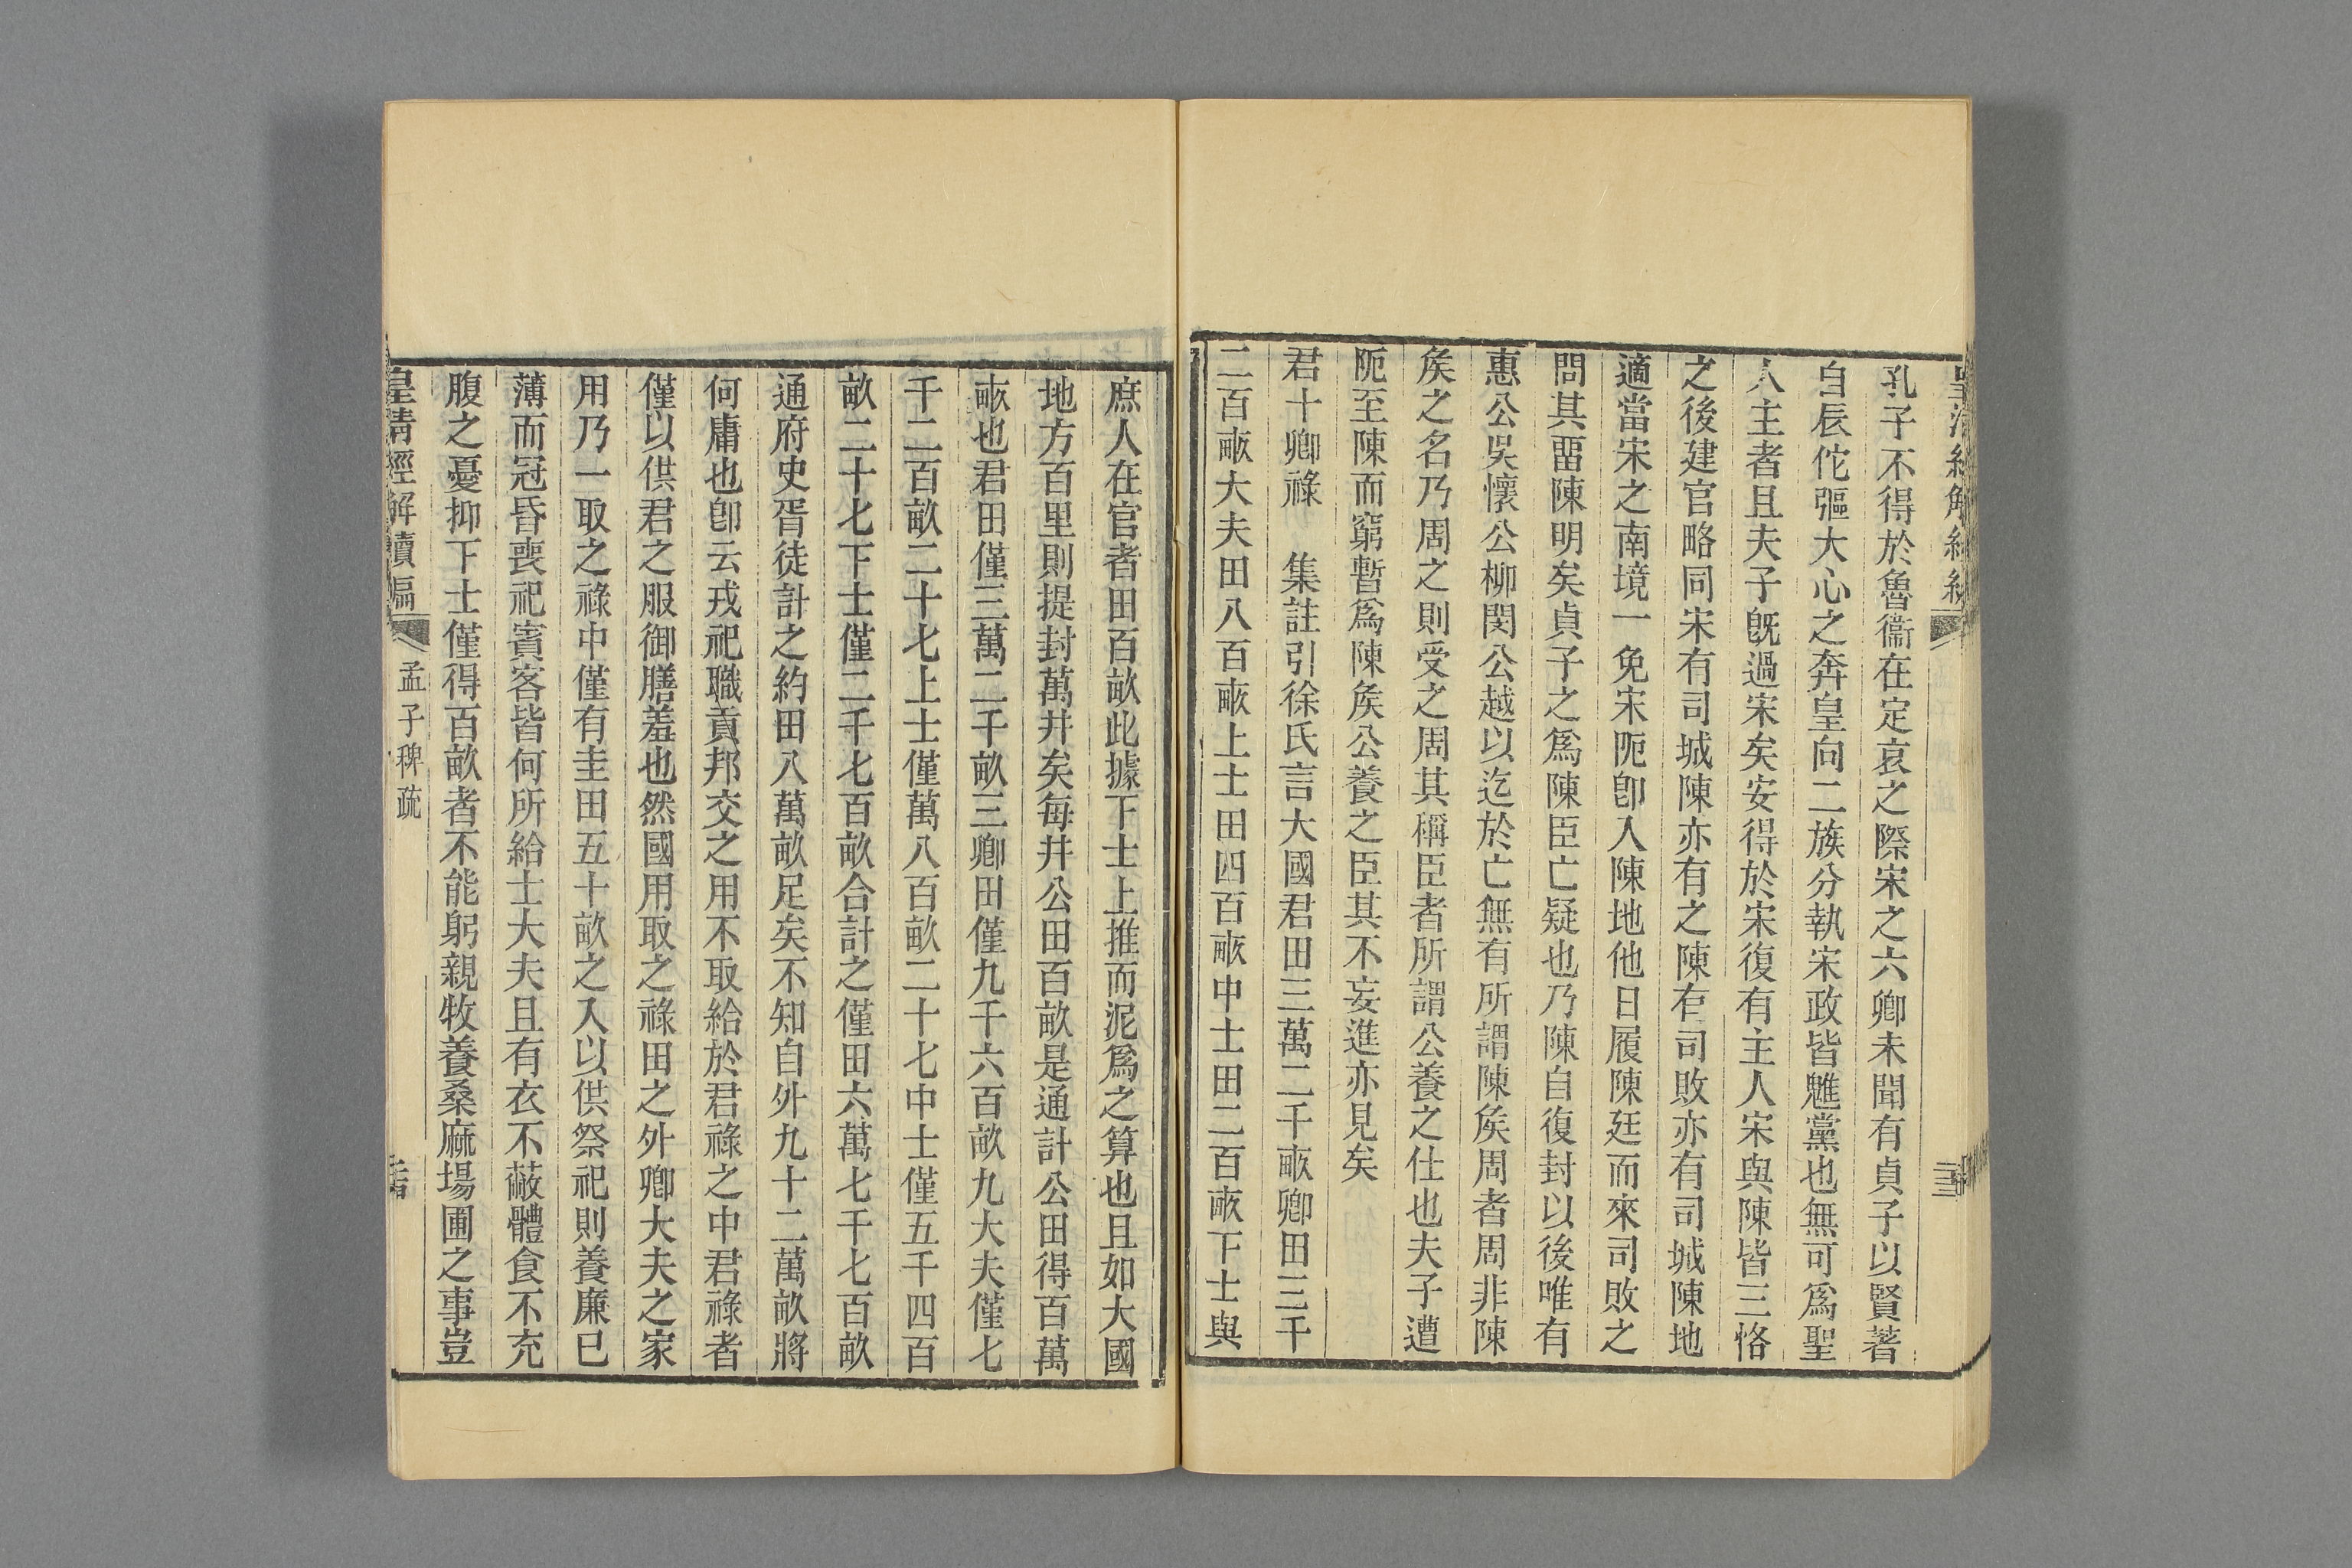 孔子不得於魯衞在定哀之際宋之六卿未聞有貞子以賢著
自辰佗彄大心之奔皇向二族分執宋政皆魋黨也無可爲聖
人主者且夫子旣過宋矣安得於宋復有主人宋與陳皆三恪
之後建官略同宋有司城陳亦有之陳有司敗亦有司城陳地
適當宋之南境一免宋阨卽入陳地他日履陳廷而來司敗之
問其畱陳明矣貞子之爲陳臣亡疑也乃陳自復封以後唯有
惠公吳懷公柳閔公越以迄於亡無有所謂陳矦周者周非陳
矦之名乃周之則受之周其稱臣者所謂公養之仕也夫子遭
阨至陳而窮暫爲陳矦公養之臣其不妄進亦見矣
君十卿祿　集註引徐氏言大國君田三萬二千畞卿田三千
二百畞大夫田八百畞上士田四百畞中士田二百畞下士與
庶人在官者田百畝此據下士上推而泥爲之算也且如大國
地方百里則提封萬井矣每井公田百畝是通計公田得百萬
畞也君田僅三萬二千畝三卿田僅九千六百畝九大夫僅七
千二百畝二十七上士僅萬八百畝二十七中士僅五千四百
畝二十七下士僅二千七百畝合計之僅田六萬七千七百畝
通府史胥徒計之約田八萬畝足矣不知自外九十二萬畝將
何庸也卽云戎祀職貢邦交之用不取給於君祿之中君祿者
僅以供君之服御膳羞也然國用取之祿田之外卿大夫之家
用乃一取之祿中僅有圭田五十畝之入以供祭祀則養廉已
薄而冠昏喪祀賓客皆何所給士大夫且有衣不蔽體食不充
腹之憂抑下士僅得百畝者不能躬親牧養桑麻場圃之事豈
皇清經解續編
孟子稗疏